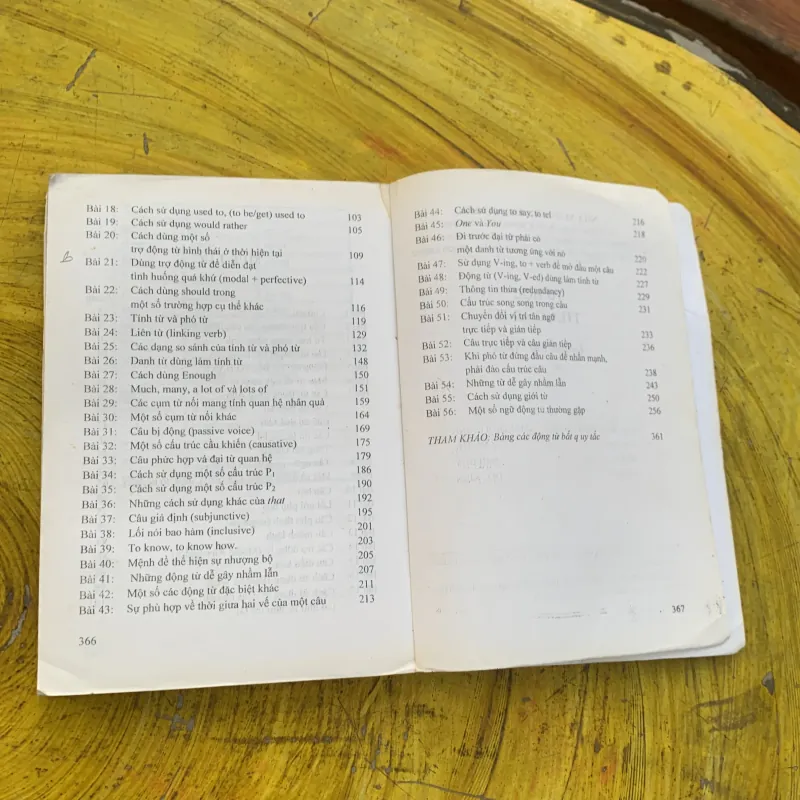 Bài 18: Cách sử dụng used to, (to be/get) used to 103
Bài 19: Cách sử dụng would rather 105
Bài 20: Cách dùng một số
trợ động từ hình thái ở thời hiện tại 109
Bài 21: Dùng trợ động từ để diễn đạt
tình huống quá khứ (modal + perfective) 114
Bài 22: Cách dùng should trong
một số trường hợp cụ thể khác 116
Bài 23: Tính từ và phó từ 119
Bài 24: Liên từ (linking verb) 129
Bài 25: Các dạng so sánh của tính từ và phó từ 132
Bài 26: Danh từ dùng làm tính từ 148
Bài 27: Cách dùng Enough 150
Bài 28: Much, many, a lot of và lots of 151
Bài 29: Các cụm từ nối mang tính quan hệ nhân quả 159
Bài 30: Một số cụm từ nối khác 164
Bài 31: Câu bị động (passive voice) 169
Bài 32: Một số cấu trúc cầu khiến (causative) 175
Bài 33: Câu phức hợp và đại từ quan hệ 179
Bài 34: Cách sử dụng một số cấu trúc P1 186
Bài 35: Cách sử dụng một số cấu trúc P2 190
Bài 36: Những cách sử dụng khác của that 192
Bài 37: Câu giả định (subjunctive) 195
Bài 38: Lối nói bao hàm (inclusive) 201
Bài 39: To know, to know how. 203
Bài 40: Mệnh đề thể hiện sự nhượng bộ 205
Bài 41: Những động từ dễ gây nhầm lẫn 207
Bài 42: Một số các động từ đặc biệt khác 211
Bài 43: Sự phù hợp về thời giưa hai vế của một câu 213
366
Bài 44: Cách sử dụng to say, to tel 216
Bài 45: One và You 218
Bài 46: Đi trước đại từ phải có
một danh từ tương ứng với nó 220
Bài 47: Sử dụng V-ing, to + verb để mở đầu một câu 222
Bài 48: Động từ (V-ing, V-ed) dùng làm tính từ 227
Bài 49: Thông tin thừa (redundancy) 229
Bài 50: Cấu trúc song song trong câu 231
Bài 51: Chuyển đổi vị trí tân ngữ
trực tiếp và gián tiếp 233
Bài 52: Câu trực tiếp và câu gián tiếp 236
Bài 53: Khi phó từ đứng đầu câu để nhấn mạnh,
phải đảo cấu trúc câu 238
Bài 54: Những từ dễ gây nhầm lẫn 243
Bài 55: Cách sử dụng giới từ 250
Bài 56: Một số ngữ động từ thường gặp 256
THAM KHẢO: Bảng các động từ bất q uy tắc 361
367